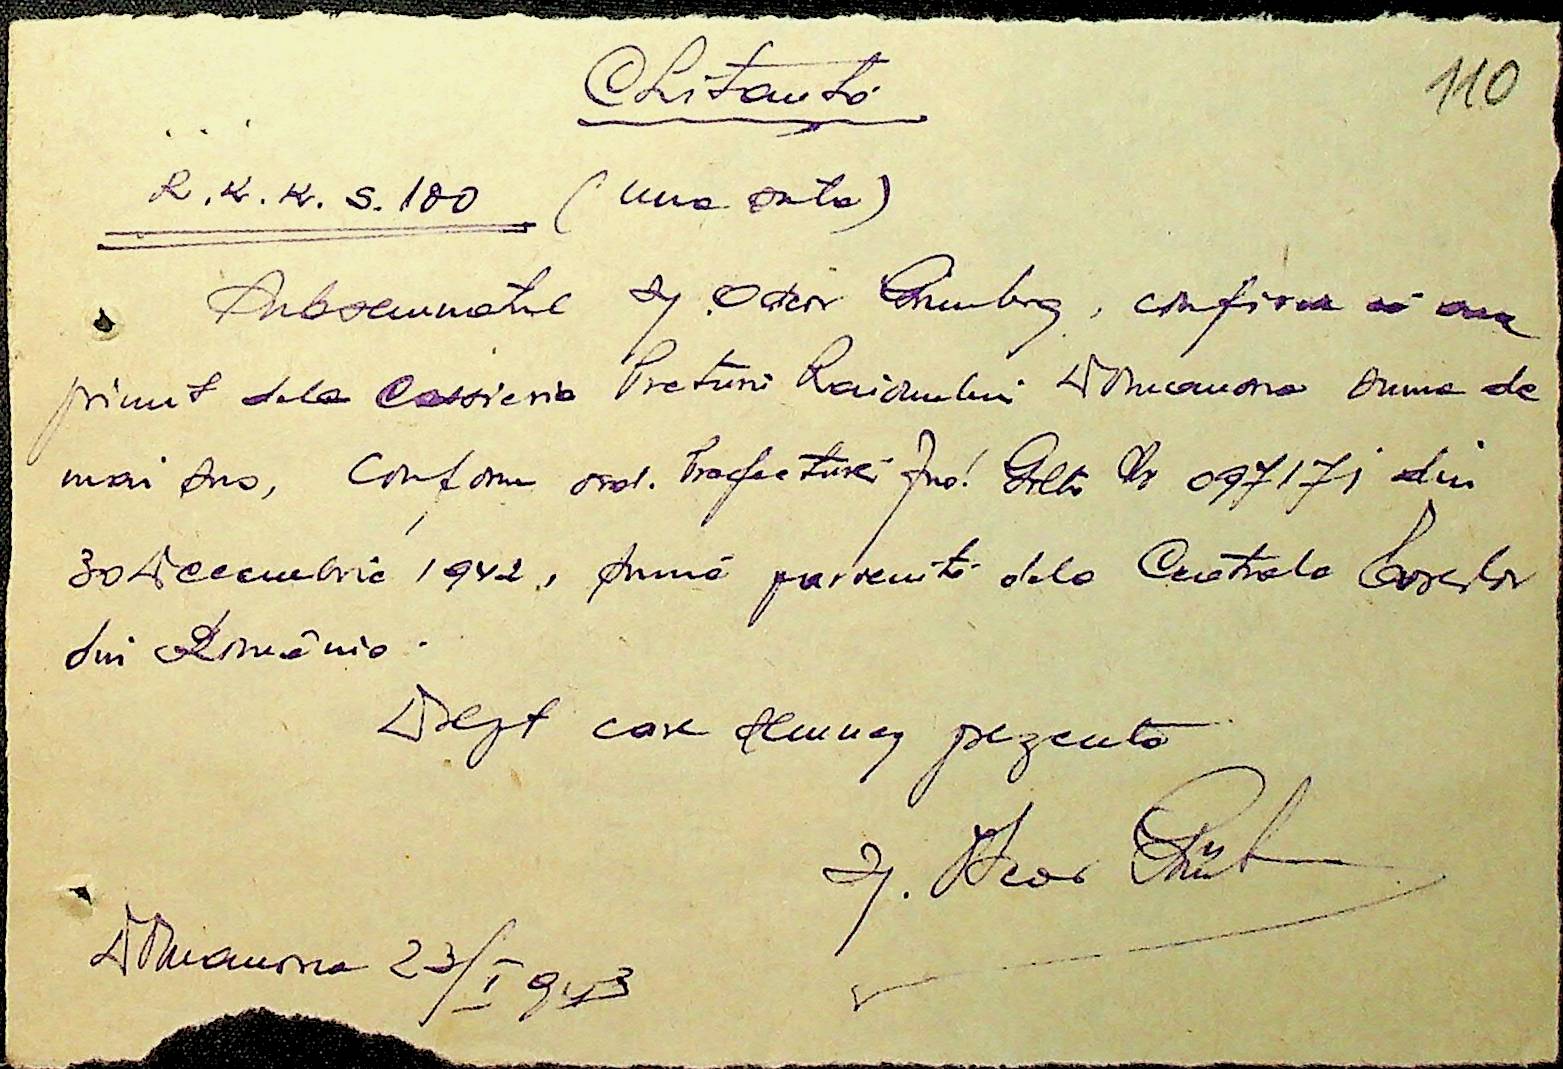 Chitanță
110
R.K.K.S. 100 (una suta)
Subsemnatul Ij. Oscar Grünberg, confirm că am
primit dela Cassieria Preturii Raionului Domanovca suma de
mai sus, conform ord. Prefecturii Jud. Golta No 09717 din
30 Decembrie 1942, sumă parvenită dela Centrala Evreilor
din România.
Drept care semnez prezenta
Ij. Oscar
Domanovca 23/I 943